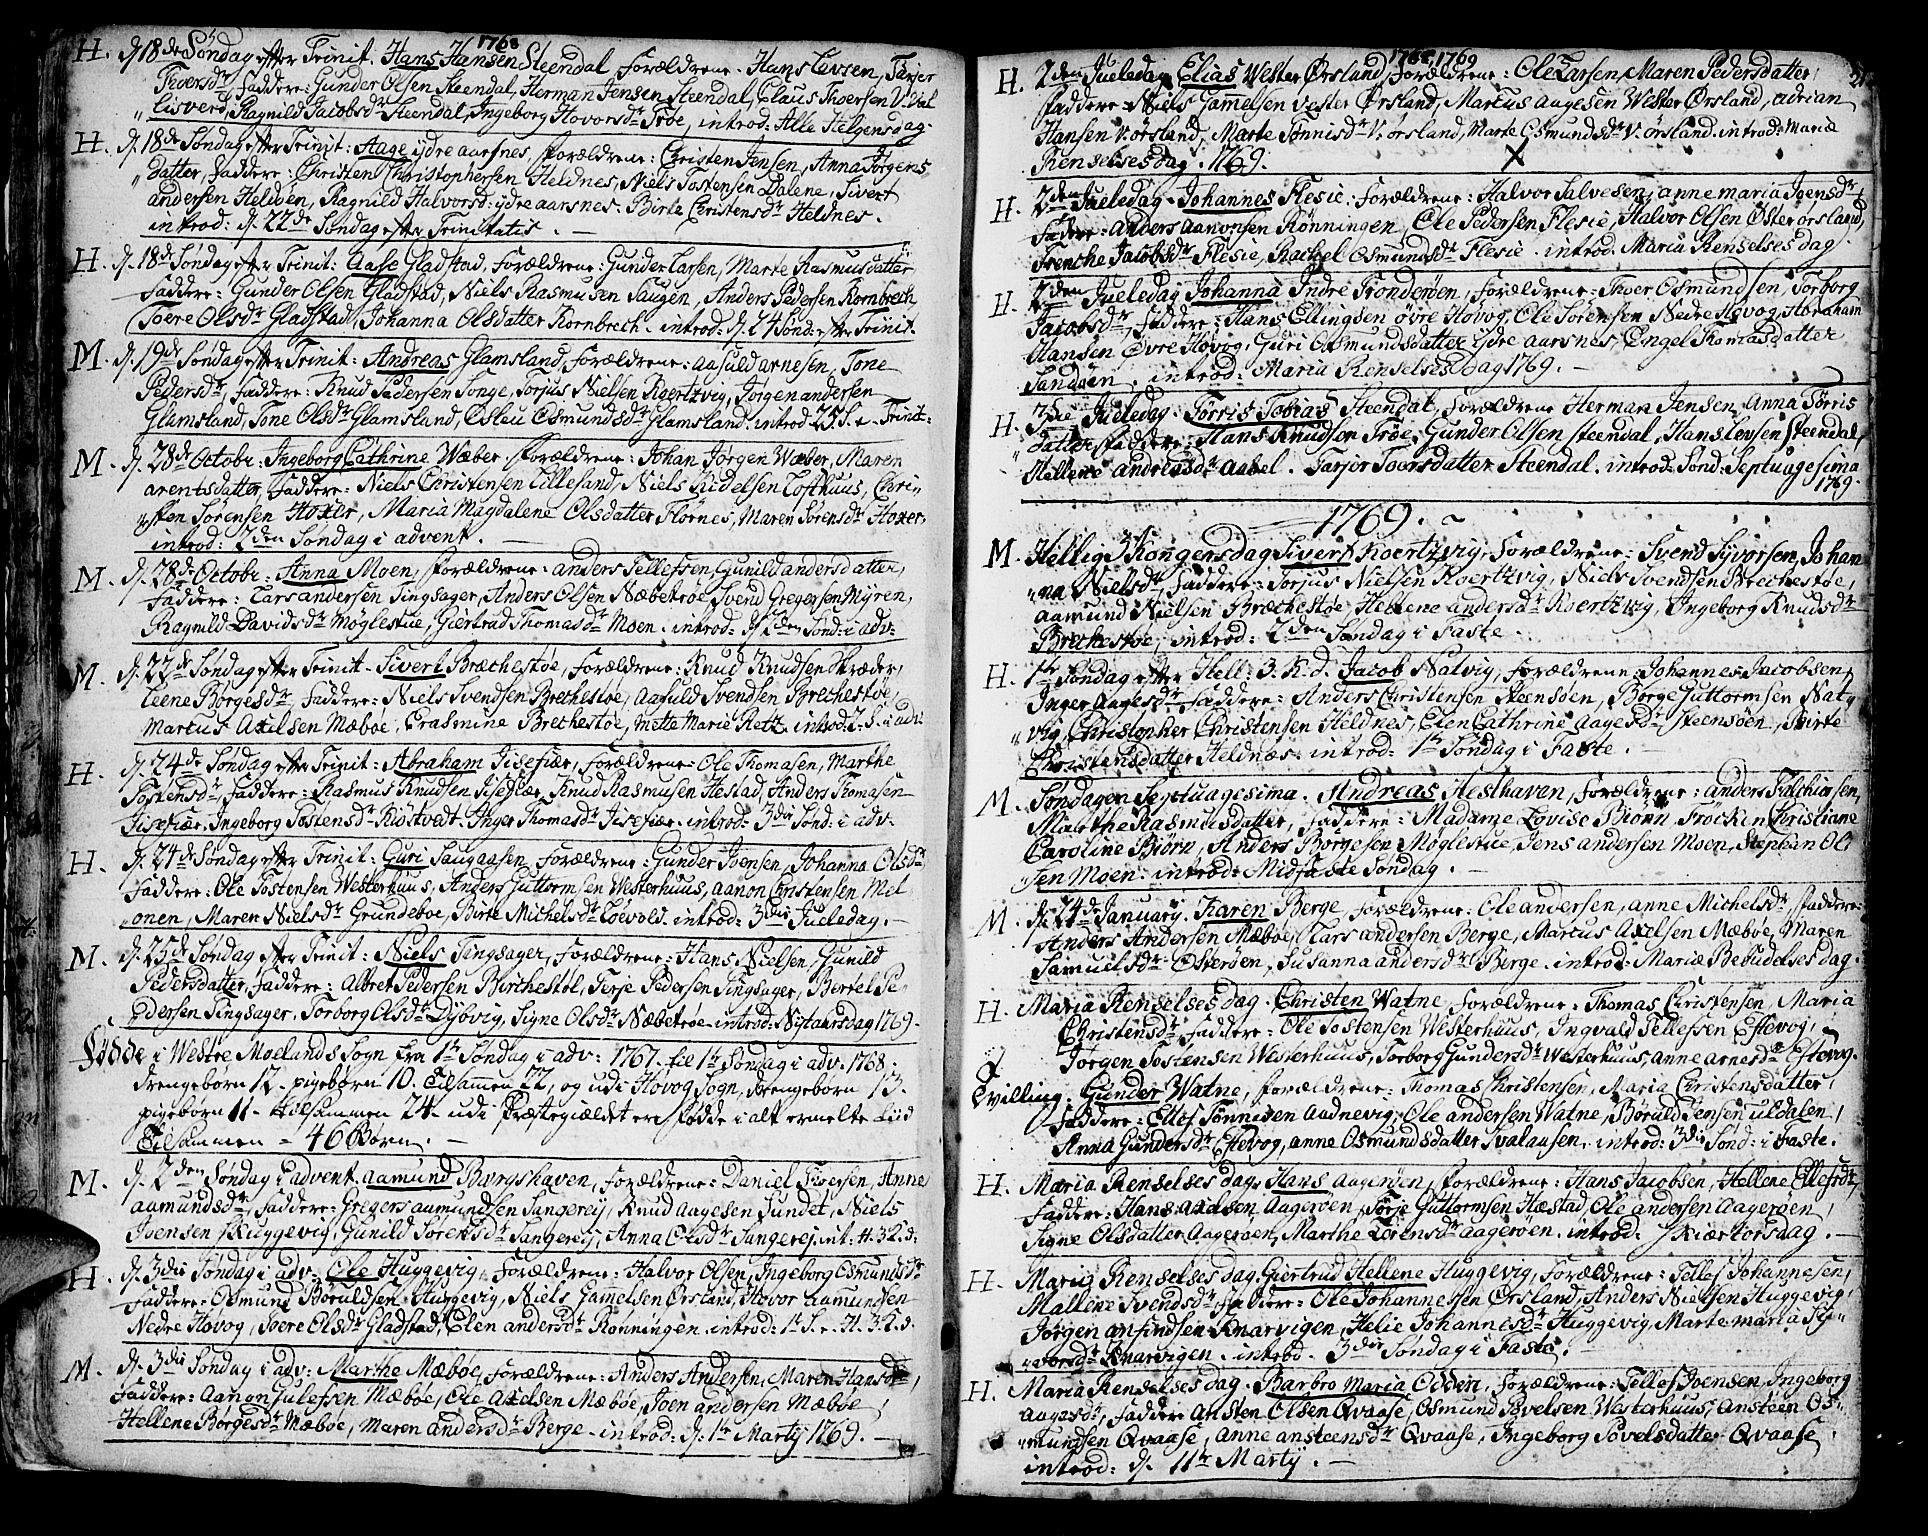 1768
H. d. 18de Søndag efter Trinit. Hans Hansen Steendal, Forældrene: Hans Levsen, Tarjer
Thoersdr, Faddere: Gunder Olsen Steendal, Herman Jensen Steendal, Claus Thoersen V. Val
„lisverd, Ragnild Jacobsdr Steendal, Ingeborg Hovorsdr Trøe, introd: Alle Helgensdag.
H. d. 18de Søndag efter Trinit: Aage ydre aarsnes, Forældrene: Christen Jensen, Anna Jørgens
„datter, Faddere: Christen Christophersen Heldnes, Niels Tostensen Dalene, Sivert
andersen Heldøen, Ragnild Halvorsd: ydre aarsnes. Birte Christensdr Heldnes.
introd: d. 22de Søndag efter Trinitatis. —
H. d. 18de Søndag efter Trinit: Aase Gladstad, Forældrene: Gunder Larsen, Marte Rasmusdatter
Faddere: Gunder Olsen Gladstad, Niels Rasmusen Saugen, Anders Pedersen Kornbrech
Toere Olsdr Gladstad, Johanna Olsdatter Kornbrech. introd: d. 24 Sønd: efter Trinit.
M. d. 19de Søndag efter Trinit: Andreas Glamsland, Forældrene: aasuld arnesen, Tone
Pedersdr, Faddere: Knud Pedersen Songe, Torjus Nielsen Koertzvig, Jørgen andersen
Glamsland, Tone Olsdr Glamsland, Øsleu Osmundsdr Glamsland. introd 25 S. e. Trinit:
M. d. 28de Octobr: Ingeborg Cathrine Wæber, Forældrene: Johan Jørgen Wæber, Maren
arentsdatter, Faddere: Niels Christensen Lillesand, Niels Eudelsen Tofthuus, Chri„
„sten Sørensen Hoxer, Maria Magdalene Olsdatter Flørnes, Maren Sørensdr Hoxer,
introd: 2den Søndag i advent. —
M. d. 28de Octobr: Anna Moen, Forældrene: anders Tellefsen, Gunild andersdatter,
Faddere: Lars andersen Tingsager, Anders Olsen Næbetrøe, Svend Gregersen Myren,
Ragnild Davidsdr Møglestue, Giertrud Thomasdr Moen. introd: d. 2den Sønd: i adv:
M. d. 22de Søndag efter Trinit. Sivert Bræchestøe, Forældrene: Knud Knudsen Skræder,
Leene Børgesdr, Faddere: Niels Svendsen Brechestøe, Aasuld Svendsen Brechestøe,
Marcus Axelsen Mæbøe, Erasmine Brechestøe, Mette Marie Retz, introd: 2. S. i adv:
H. d. 24de Søndag efter Trinit: Abraham Tisefiær, Forældrene: Ole Thomasen, Marthe
Tostensdr, Faddere: Rasmus Knudsen Tisefiær, Knud Rasmusen Hestad, Anders Thomasen
Tisefiær, Ingeborg Tostensdr Kiøstvedt, Inger Thomasdr Tisefiær. introd: 3die Sønd: i adv.
H. d. 24de Søndag efter Trinit: Guri Saugaasen, Forældrene: Gunder Joensen, Johanna Olsdr
Faddere: Ole Tostensen Westerhuus, Anders Guttormsen Westerhuus, aanon Christensen Mel
„onen, Maren Nielsdr Grundebøe, Birte Michelsdr Løevold. introd: 3die Jueledag. —
M. d. 25de Søndag efter Trinit: Niels Tingsager, Forældrene: Hans Nielsen, Gunild
Pedersdatter, Faddere: Albret Pedersen Birchestøl, Terje Pedersen Tingsager, Bertel Pe„
„dersen Tingsager, Torborg Olsdr Dybvig, Signe Olsdr Næbetrøe. introd: Nytaarsdag 1769.
Fødde i Westre Moelands Sogn fra 1te Søndag i adv: 1767. til 1te Søndag i adv. 1768.
drengebørn 12. pigebørn 10. Tilsammen 22, og udi Høvog Sogn, drengebørn 13.
pigebørn 11 – tilsammen 24 – udi Præstegieldet ere fødde i alt ermelte tiid
Tilsammen = 46 Børn. —
M. d. 2den Søndag i advent. aamund Borgshaven, Forældrene: Daniel Tioersen, Anne
aamundsdr, Faddere: Gregers aamundsen Sangereij, Knud Aagesen Sundet, Niels
Joensen Skuggevig, Gunild Sørensdr Sangereij, Anna Olsdr Sangerej. int: H. 3 K. d.
H. d. 3die Søndag i adv. Ole Huggevig, Forældrene: Halvor Olsen, Ingeborg Osmundsdr
Faddere: Osmund Boruldsen Huggevig, Niels Gamelsen Ørsland, Hovor aamundsen
Nedre Høvog, Toere Olsdr Gladstad, Elen andersdr Rønningen. introd: 1te S. e. H. 3. K. d.
M. d. 3die Søndag i adv: Marthe Mæbøe, Forældrene: Anders Andersen, Maren Hansdr,
Faddere: Aanon Gulefsen Mæbøe, Ole Axelsen Mæbøe, Joen andersen Mæbøe
Hellene Borgesdr Mæbøe, Maren andersdr Berge. introd: d. 1te Martij 1769. —
1768, 1769
H. 2den Jueledag Elias Wester Ørsland, Forældrene: Ole Larsen, Maren Pedersdatter,
Faddere: Niels Gamelsen Vester Ørsland, Marcus aagesen Wester Ørsland, adrian
Hansen V. ørsland, Marte Tønnisdr V. ørsland, Marte Osmundsdr V. ørsland. introd: Mariæ
Renselsesdag. 1769. X
H. 2den Jueledag. Johannes Flesie, Forældrene: Halvor Salvesen, anne maria Joensdr
Faddere: Anders Aanonsen Rønningen, Ole Pedersen Flesie, Halvor Olsen Øster ørsland,
Trenche Jacobsdr Flesie, Rachel Osmundsdr Flesie. introd: Mariæ Renselsesdag.
H. 2den Jueledag Johanna Indre Trondøen, Forældrene: Thoer Osmundsen, Torborg
Jacobsdr, Faddere: Hans Ellingsen øvre Høvog, Ole Sørensen Nedre Høvog, Abraham
Hansen Øvre Høvog, Guri Osmundsdatter ydre aarsnes, Engel Thomasdatter
Sandøen. introd: Mariæ Renselses Dag 1769. —
H. 3die Jueledag: Tørris Tobias Steendal, Forældrene Herman Jensen, Anna Tørris
„datter Faddere: Hans Knudsøn Trøe, Gunder Olsen Steendal, Hans Levsen Steendal,
Hellene andreasdr aabel. Tarjer Toersdatter Steendal. introd: Sønd: Septuagesima
1769.
1769. ~
M. Hellig 3 Kongersdag Sivert Koertzvig, Forældrene: Svend Syvorsen, Johan
„na Nielsdr, Faddere: Torjus Nielsen Koertzvig, Niels Svendsen Brechestøe,
aamund Nielsen Brechestøe, Hellene andersdr Koertzvig, Ingeborg Knudsdr
Brechestøe, introd: 2den Søndag i Faste.
H. 1te Søndag efter Hell: 3. K. d. Jacob Natvig, Forældrene: Johannes Jacobsen,
Inger Aagesdr Faddere: Anders Christensen Steensøen, Børge Guttormsen Nat„
„vig, Christopher Christensen Heldnes, Elen Cathrine aagesdr Steensøen, Birte
Christensdatter Heldnæs. introd: 1te Søndag i Faste. —
M. Søndagen Septuagesima. Andreas Hesthaven, Forældrene: anders Falchinsen,
Marthe Rasmusdatter, Faddere: Madame Lovise Biørn, Frøckin Christiane
Caroline Biørn, Anders Børgesen Møglestue, Jens andersen Moen, Stephan Ol
„sen Moen. introd: Midfaste Søndag. —
M. d. 24de January. Karen Berge, Forældrene: Ole andersen, anne Michelsdr, Faddere:
Anders Andersen Mæbøe, Lars andersen Berge, Marcus Axelsen Mæbøe, Maren
Samuelsdr Osterøen, Susanna andersdr Berge. introd: Mariæ Bebudelsesdag.
H. Mariæ Renselses dag. Christen Watne, Forældrene: Thomas Christensen, Maria
Christensdr, Faddere: Ole Tostensen Westerhuus, Ingvald Tellefsen Eftevog,
Jorgen Tostensen Westerhuus, Torborg Gundersdr Westerhuus, anne arnesdr Eftevog.
Tvilling: Gunder Watne, Forældrene: Thomas Christensen, Maria Christensdatter,
Faddere: Ellef Tønnisen Aadnevig, Ole andersen Watne, Boruld Jensen Uldalen,
Anna Gundersdr Eftevog, anne Osmundsdatter Svalaasen, introd: 3die Sønd: i Faste.
H. Mariæ Renselses dag, Hans Aagerøen, Forældrene: Hans Jacobsen, Hellene Ellefsdr,
Faddere: Hans Axelsen Aagerøen, Terje Guttormsen Hæstad, Ole andersen Aagerøen,
Signe Olsdatter Aagerøen, Marthe Lorensdr aagerøen. introd: Skiærtorsdag. —
H. Mariæ Renselses dag. Giertrud Hellene Huggevig, Forældrene: Tellef Johannesen,
Mallene Svendsdr, Faddere: Ole Johannesen Ørsland, Anders Nielsen Huggevig,
Jørgen anfindsen Knarvigen, Helie Johannesdr Huggevig, Marte maria Sy„
„vorsdr Knarvigen. introd. 3die Søndag i Faste.
H. Mariæ Renselses dag. Barbro Maria Odden, Forældrene: Tellef Joensen, Ingeborg
Aagesdr, Faddere Ansten Olsen Qvaase, Osmund Povelsen Westerhuus, Ansteen Os„
„mundsen Qvaase, anne ansteensdr Qvaase, Ingeborg Povelsdatter Qvaase.
introd: d. 11te Martij. —